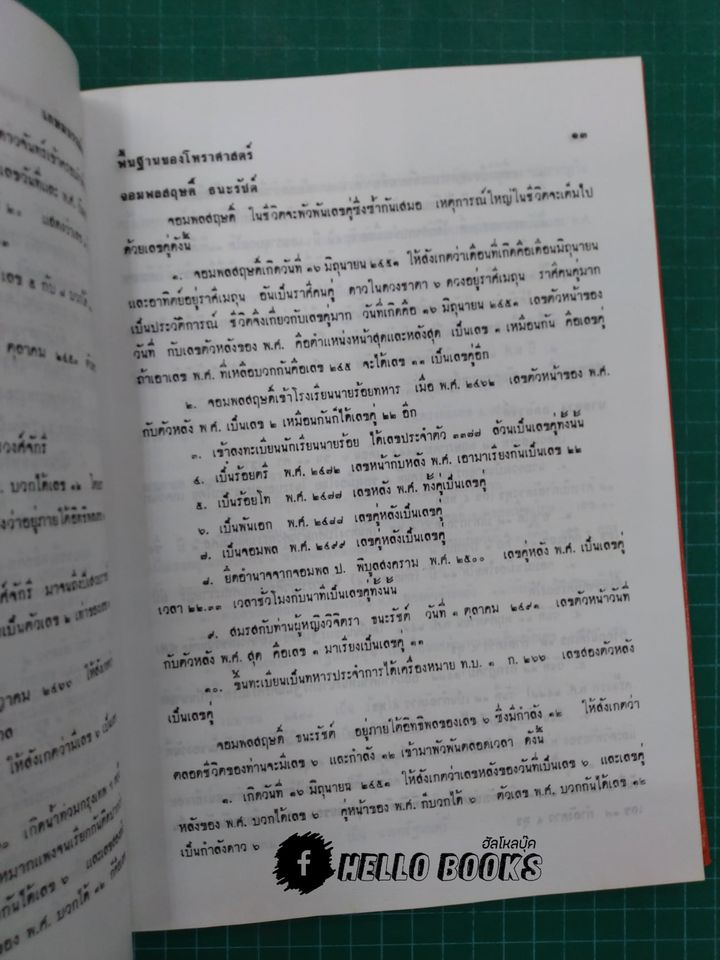 ๑๓
พื้นฐานของโหราศาสตร์
จอมพลสฤษดิ์ ธนะรัชต์
จอมพลสฤษดิ์ ในชีวิตจะพัวพันเลขคู่ซึ่งซ้ำกันเสมอ เหตุการณ์ใหญ่ในชีวิตจะเต็มไป
ด้วยเลขคู่ดังนี้
๑. จอมพลสฤษดิ์เกิดวันที่ ๑๖ มิถุนายน ๒๔๕๑ ให้สังเกตว่าเดือนที่เกิดคือเดือนมิถุนายน
และอาทิตย์อยู่ราศีเมถุน อันเป็นราศีคนคู่ ดาวในดวงชาตา ๖ ดวงอยู่ราศีเมถุน ราศีคนคู่มาก
เป็นประวัติการณ์ ชีวิตจึงเกี่ยวกับเลขคู่มาก วันที่เกิดคือ ๑๖ มิถุนายน ๒๔๕๑ เลขตัวหน้าของ
วันที่ กับเลขตัวหลังของ พ.ศ. คือตำแหน่งหน้าสุดและหลังสุด เป็นเลข ๑ เหมือนกัน คือเลขคู่
ถ้าเอาเลข พ.ศ. ที่เหลือบวกกันคือเลข ๒๔๕ จะได้เลข ๑๑ เป็นเลขคู่อีก
๒. จอมพลสฤษดิ์เข้าโรงเรียนนายร้อยทหาร เมื่อ พ.ศ. ๒๔๖๒ เลขตัวหน้าของ พ.ศ.
กับตัวหลัง พ.ศ. เป็นเลข ๒ เหมือนกันก็ได้เลขคู่ ๒๒ อีก
๓. เข้าลงทะเบียนนักเรียนนายร้อย ได้เลขประจำตัว ๓๓๗๗ ล้วนเป็นเลขคู่ทั้งนั้น
๔. เป็นร้อยตรี พ.ศ. ๒๔๗๒ เลขหน้ากับหลัง พ.ศ. เอามาเรียงกันเป็นเลข ๒๒
๕. เป็นร้อยโท พ.ศ. ๒๔๗๗ เลขหลัง พ.ศ. ทั้งคู่เป็นเลขคู่
๖. เป็นพันเอก พ.ศ. ๒๔๘๘ เลขคู่หลังเป็นเลขคู่
๗. เป็นจอมพล พ.ศ. ๒๔๙๙ เลขคู่หลังเป็นเลขคู่
๘. ยึดอำนาจจากจอมพล ป. พิบูลสงคราม พ.ศ. ๒๕๐๐ เลขคู่หลัง พ.ศ. เป็นเลขคู่
เวลา ๒๒.๓๓ เวลาชั่วโมงกับนาทีเป็นเลขคู่ทั้งนั้น
๙. สมรสกับท่านผู้หญิงวิจิตรา ธนะรัชต์ วันที่ ๑ ตุลาคม ๒๔๙๑ เลขตัวหน้าวันที่
กับตัวหลัง พ.ศ. สุด คือเลข ๑ มาเรียงเป็นเลขคู่ ๑๑
๑๐. ขึ้นทะเบียนเป็นทหารประจำการได้เครื่องหมาย ท.บ. ๑ ก. ๒๖๖ เลขสองตัวหลัง
เป็นเลขคู่
จอมพลสฤษดิ์ ธนะรัชต์ อยู่ภายใต้อิทธิพลของเลข ๖ ซึ่งมีกำลัง ๑๒ ให้สังเกตว่า
ตลอดชีวิตของท่านจะมีเลข ๖ และกำลัง ๑๒ เข้ามาพัวพันตลอดเวลา ดังนี้
๑. เกิดวันที่ ๑๖ มิถุนายน ๒๔๕๑ ให้สังเกตว่าเลขหลังของวันที่เป็นเลข ๖ และเลขคู่
หลังของ พ.ศ. บวกได้เลข ๖ คู่หน้าของ พ.ศ. ก็บวกได้ ๖ ตัวเลข พ.ศ. บวกกันได้เลข ๑๒
เป็นกำลังดาว ๖
ฮัลโหลบุ๊ค
f HELLO BOOKS